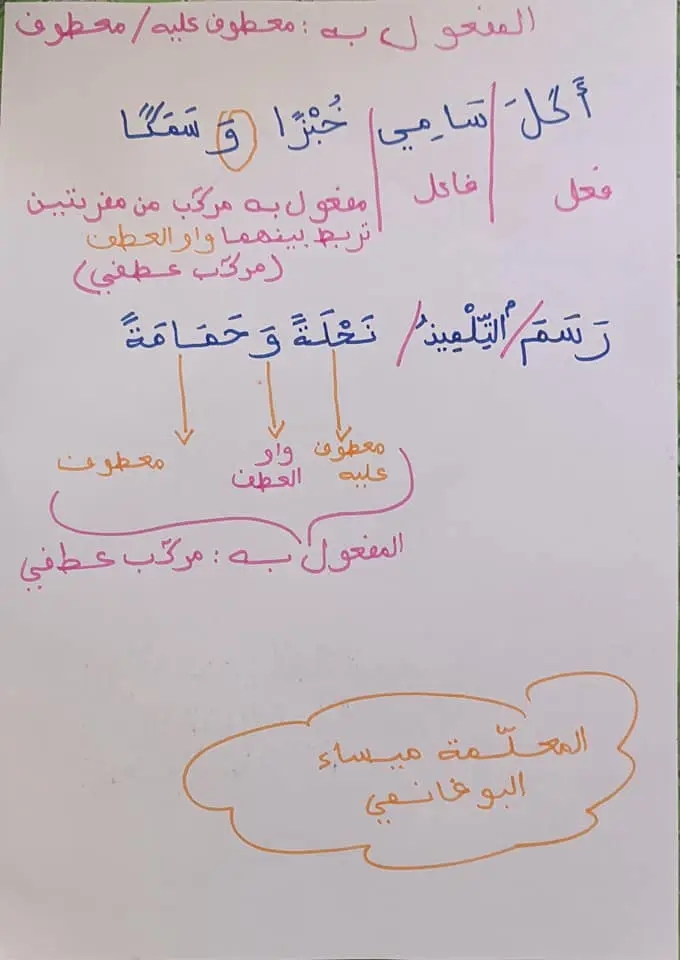 المفعول به : معطوف عليه / معطوف
أَكَلَ / سَامِي / خُبْزًا وَ سَمَكًا
فعل فاعل مفعول به مركّب من مفردتين
تربط بينهما واو العطف
(مركّب عطفي)
رَسَمَ / التِّلْمِيذُ / نَحْلَةً وَ حَمَامَةً
معطوف عليه واو العطف معطوف
المفعول به : مركّب عطفي
المعلّمة ميساء